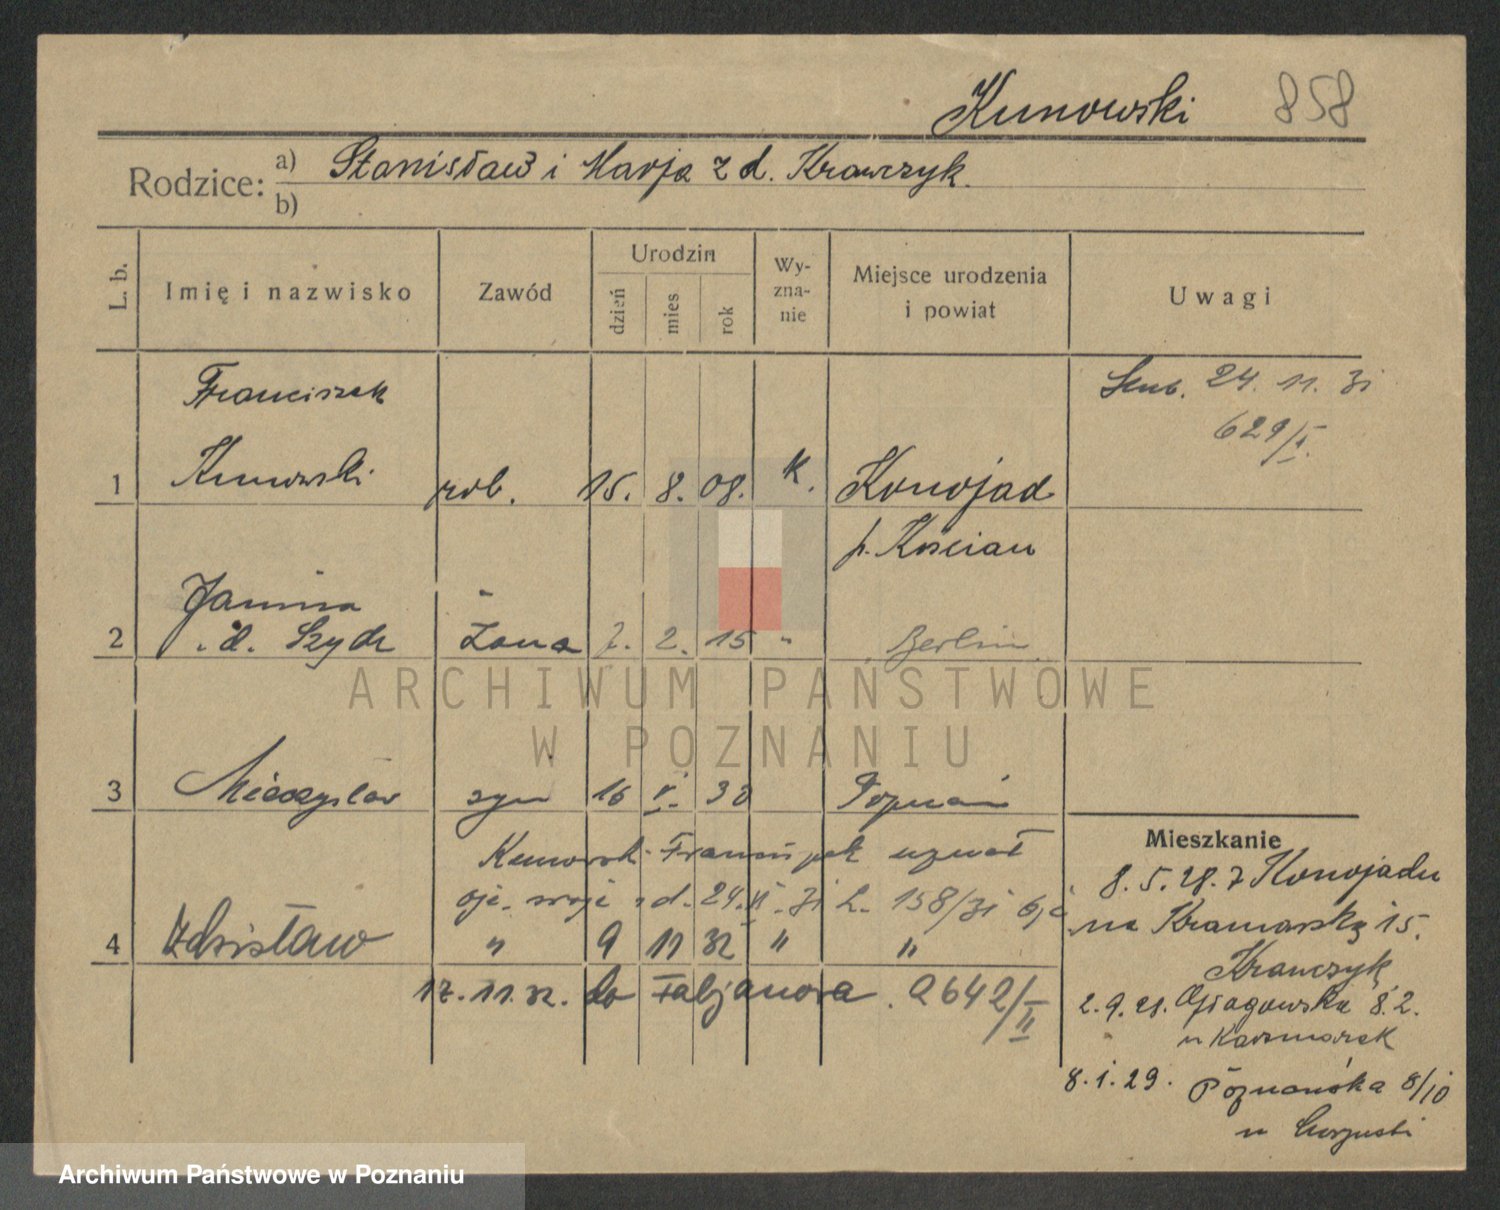 Kunowski 858
Rodzice: a) Stanisław i Marja z d. Krawczyk.
b)
L. b. Imię i nazwisko Zawód Urodzin dzień mies rok Wyzna-nie Miejsce urodzenia i powiat Uwagi
Franciszek 24. 11. 31
629/I.
1 Kunowski rob. 15. 8. 08. K. Konojad
p. Kościan
Janina
2 d. Szydr żona 7. 2. 15 " Berlin
ARCHIWUM PAŃSTWOWE
W POZNANIU
3 Mieczysław syn 16 V. 30 Poznań
Mieszkanie
Kunowski Franciszek uznał
8. 5. 28. z Konojadu
d. 24. 31 L. 158/31
na Kramarską 15.
4 Zdzisław " 9 11 32 " "
Krawczyk
17. 11. 32. do Fabjanowa. 2642/II
2. 9. 28. Głogowska 8. 2.
u Kaczmarek
8. 1. 29. Poznańska 8/10
u
Archiwum Państwowe w Poznaniu